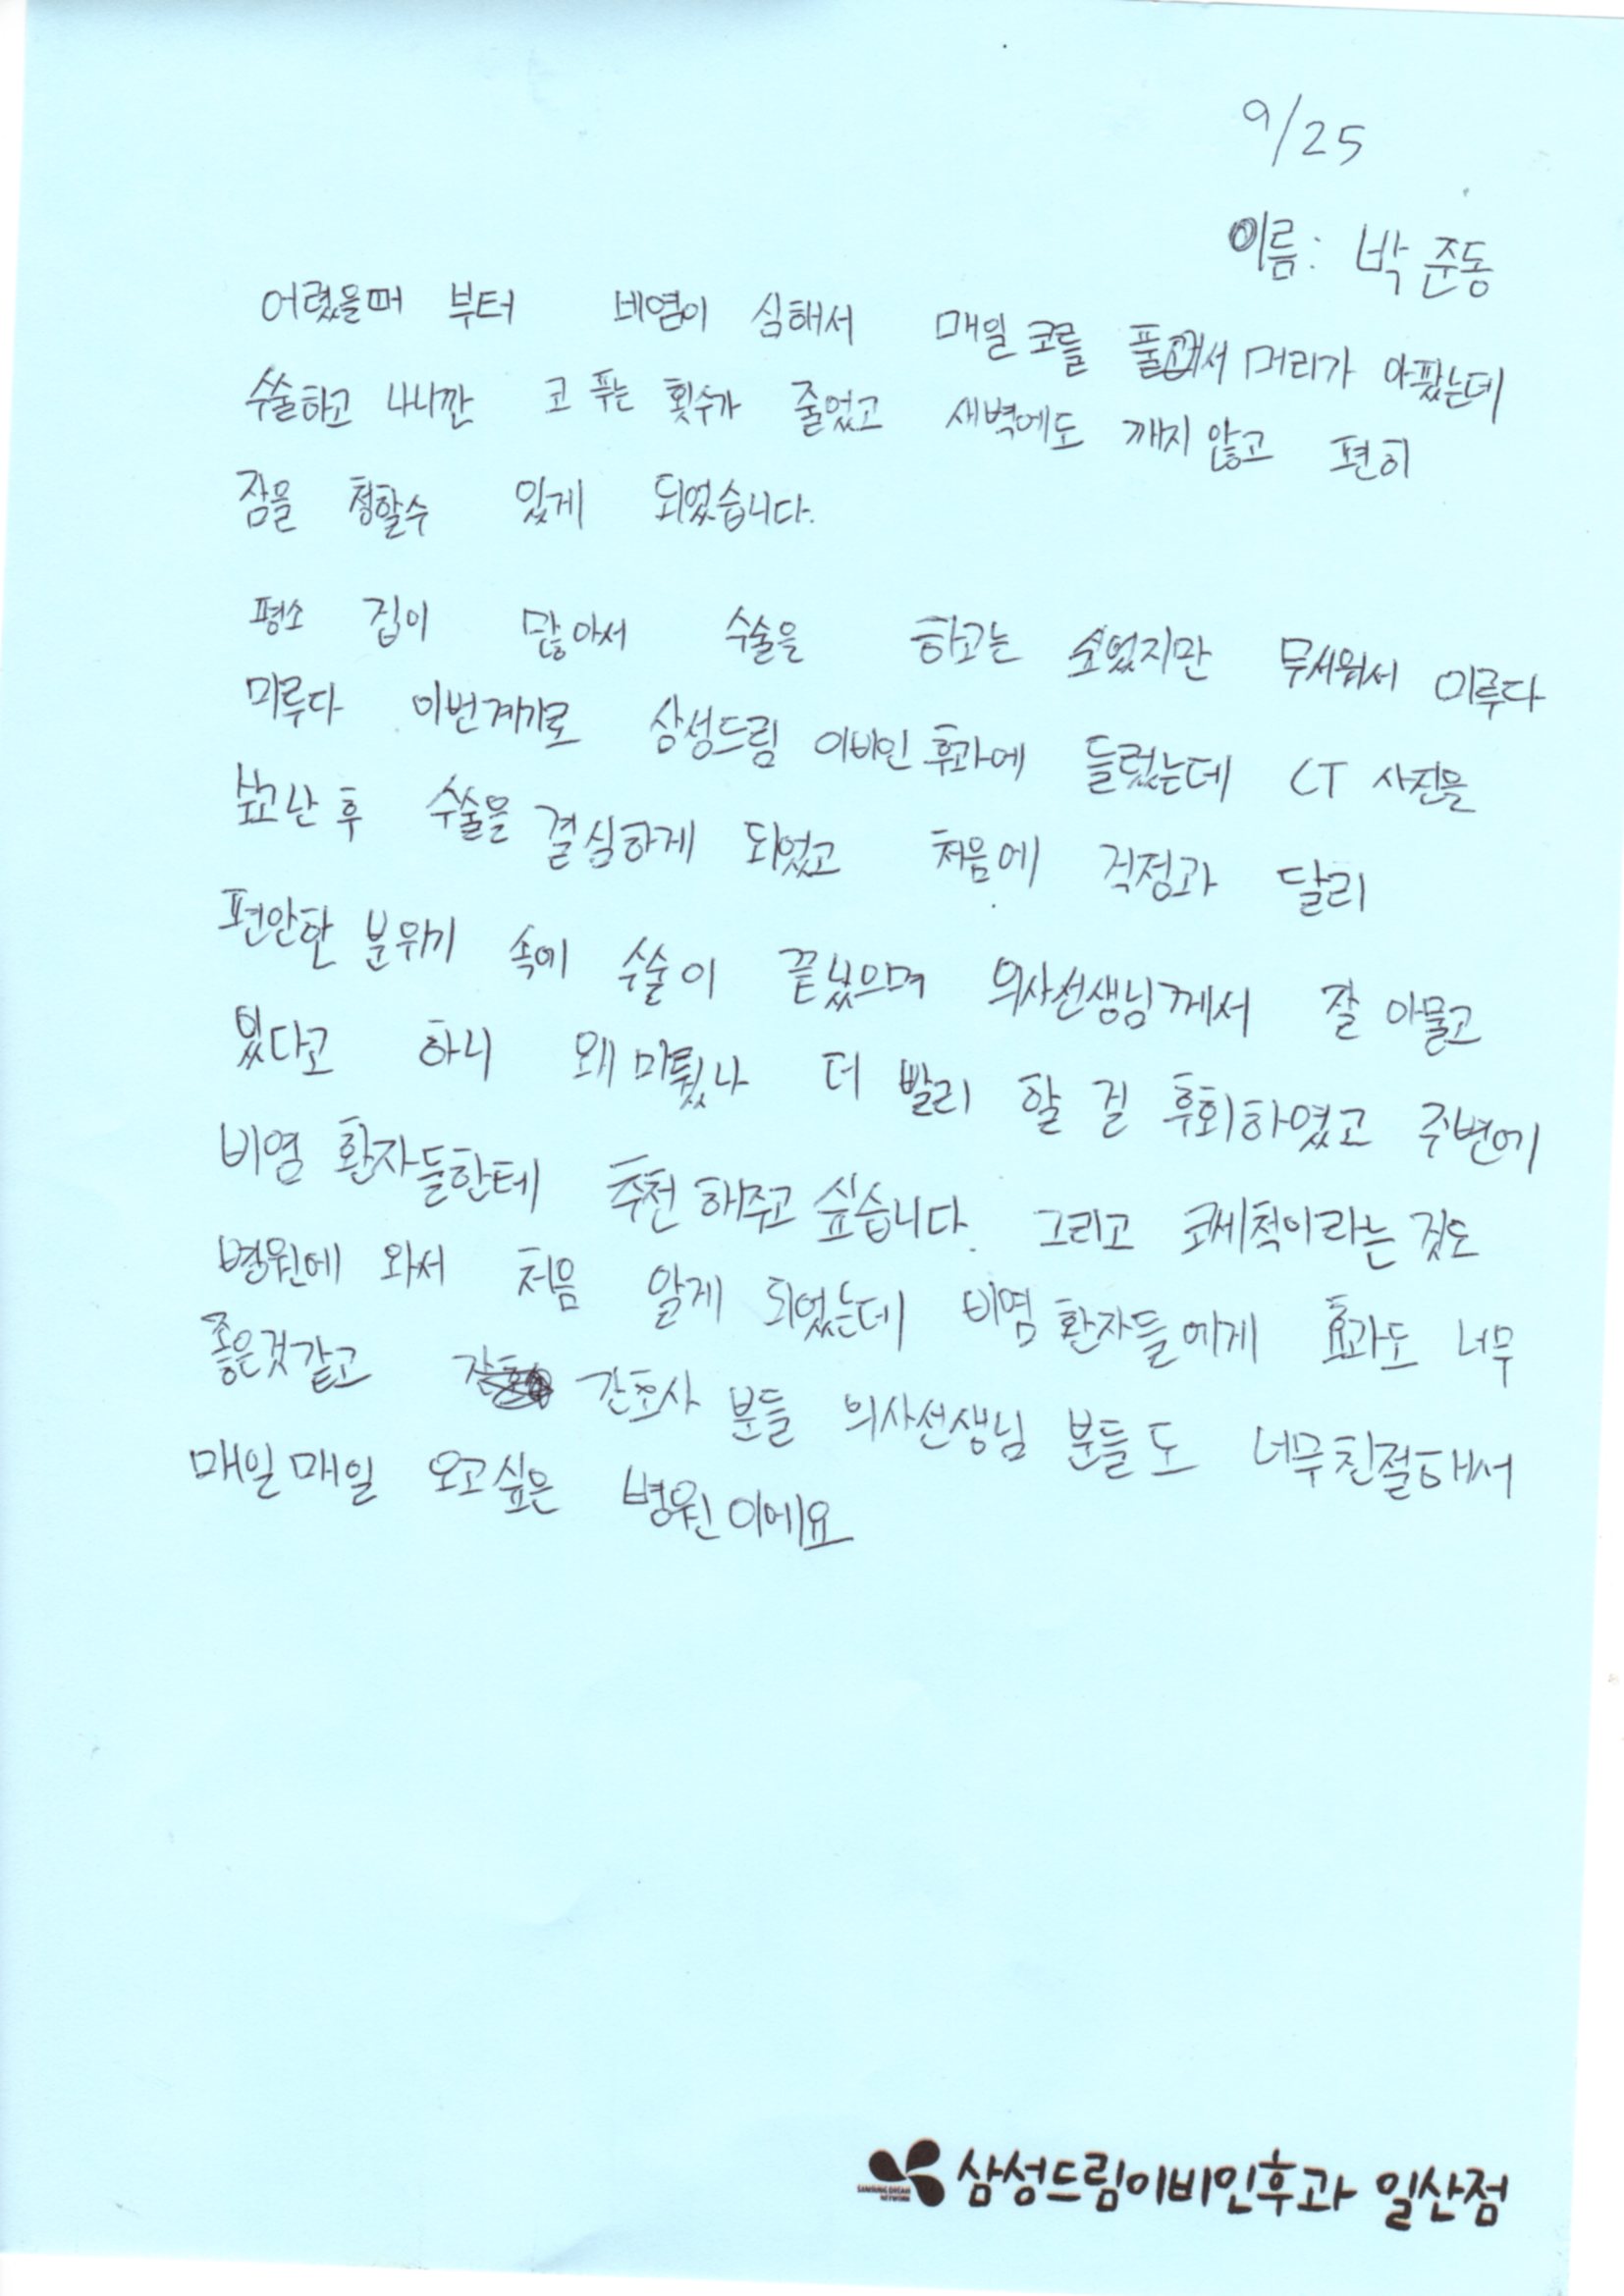 9/25
이름: 박준동
어렸을때 부터 비염이 심해서 매일 코를 풀고해서 머리가 아팠는데
수술하고 나니깐 코 푸는 횟수가 줄었고 새벽에도 깨지 않고 편히
잠을 청할수 있게 되었습니다.
평소 겁이 많아서 수술을 하고는 싶었지만 무서워서 미루다
미루다 이번계기로 삼성드림 이비인후과에 들렀는데 CT 사진을
찍고난 후 수술을 결심하게 되었고 처음에 걱정과 달리
편안한 분위기 속에 수술이 끝났으며 의사선생님께서 잘 아물고
있다고 하니 왜 미뤘나 더 빨리 할 걸 후회하였고 주변에
비염 환자들한테 추천 해주고 싶습니다. 그리고 코세척이라는 것도
병원에 와서 처음 알게 되었는데 비염 환자들에게 효과도 너무
좋은것같고 간호사 분들 의사선생님 분들도 너무친절해서
매일매일 오고싶은 병원이에요
SAMSUNG DREAM
NETWORK
삼성드림이비인후과 일산점